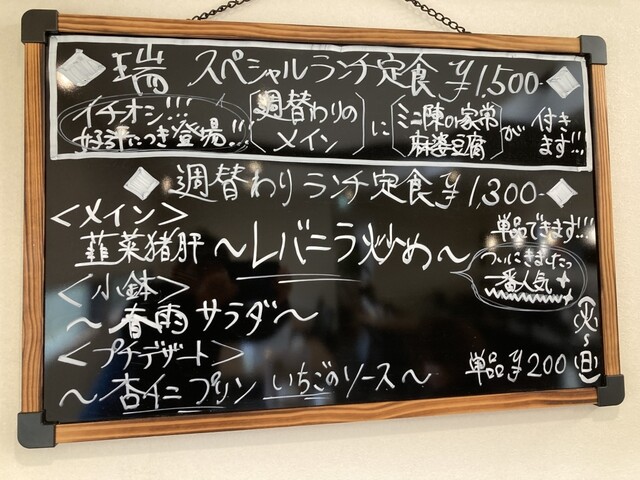 瑞 スペシャルランチ定食 ¥1,500-
イチオシ!!!
好評につき登場!!!
週替わりの
メイン
に
ミニ陳の家常
麻婆豆腐
が
付き
ます!!!
週替わりランチ定食 ¥1,300-
<メイン>
韮菜猪肝 〜レバニラ炒め〜
単品できます!!!
ついにきましたっ
一番人気
<小鉢>
〜春雨サラダ〜
<プチデザート>
〜杏仁プリン いちごのソース〜
単品¥200
(火〜日)